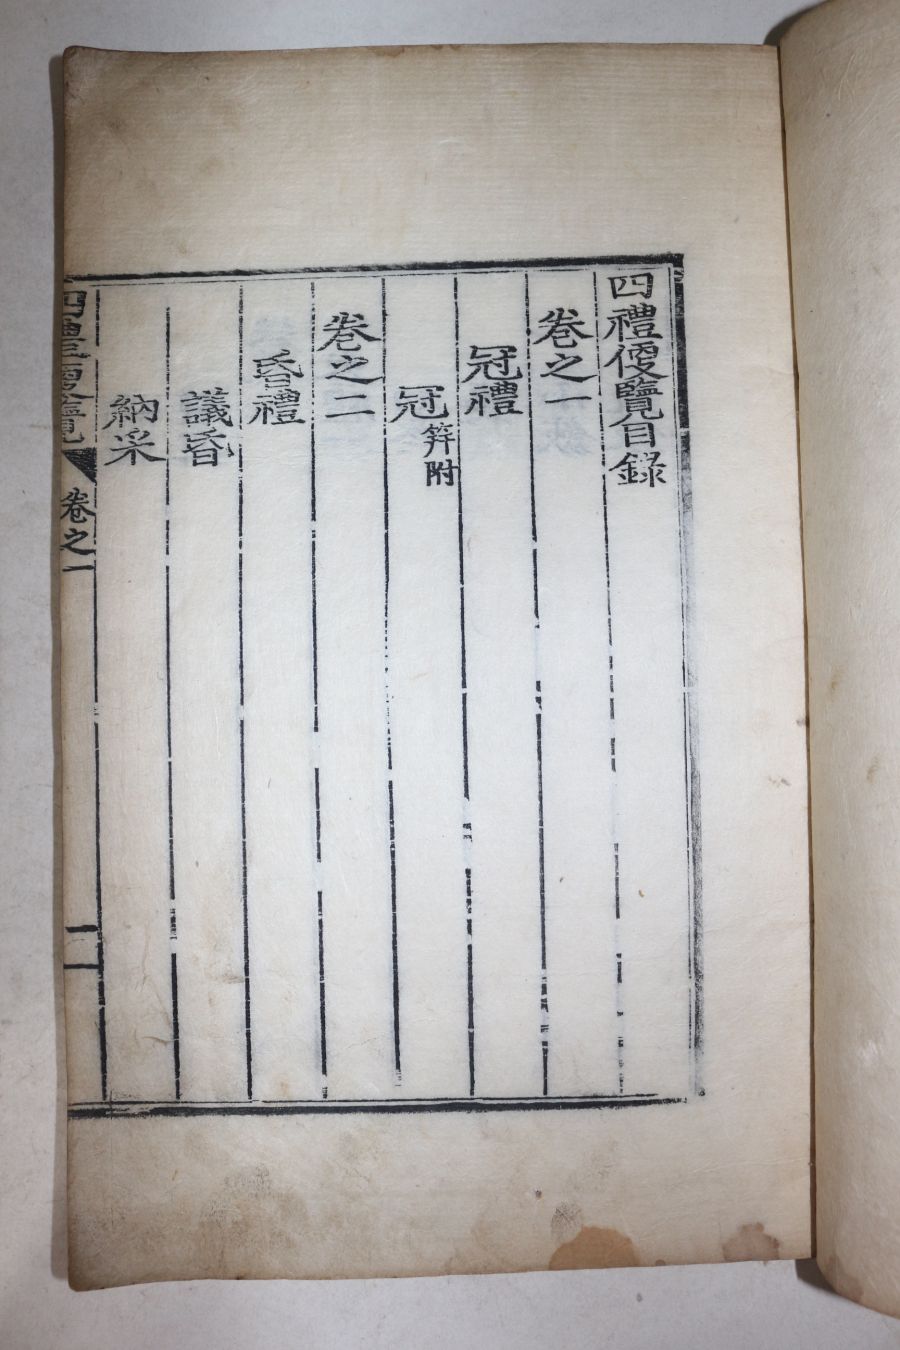 四禮便覽目錄
卷之一
冠禮
冠 笄附
卷之二
昏禮
議昏
納采
四禮便覽 卷之一